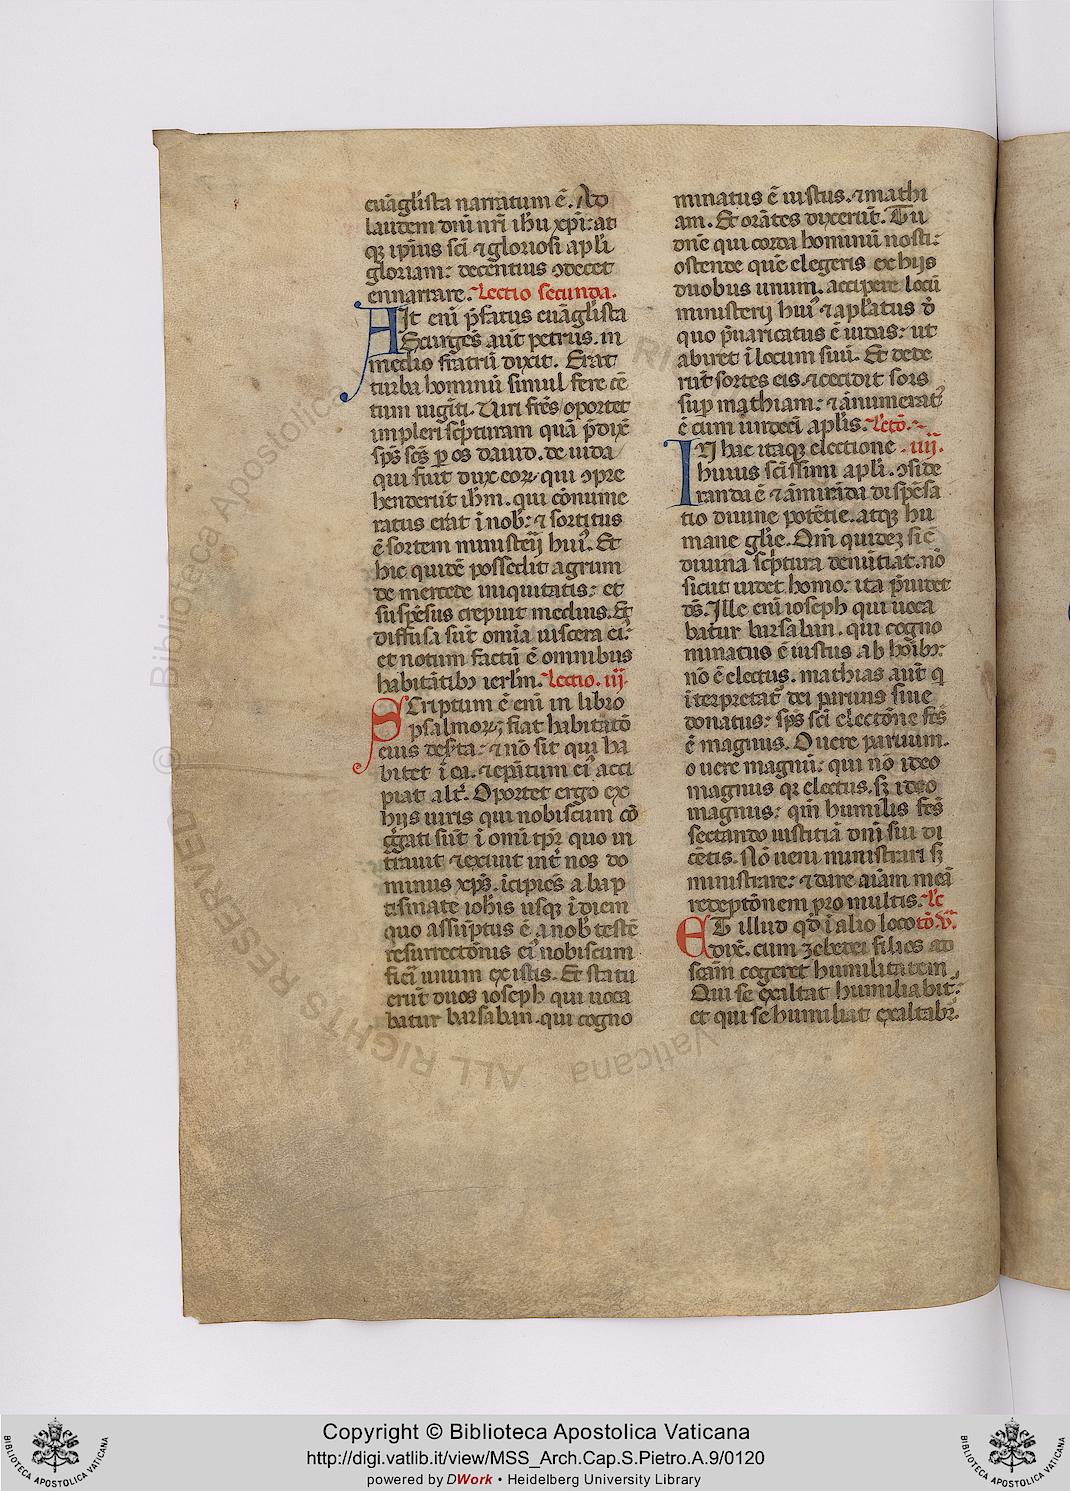 euãglista narratum ẽ. Ad
laudem dñi nr̃i ih̃u xp̃i: at
qꝫ ip̃ius sc̃i ⁊ gloriosi apl̃i
gloriam: decentius ꝯdecet
ennarrare. Lectio secunda.
AIt eni p̃fatus euãglista
Exurgẽs aut̃ petrus. in
medio fratrũ dixit. Erat
turba hominũ simul fere cẽ
tum uiginti. Uiri fr̃es oportet
impleri sc̃pturam quã p̃dix̃
sp̃s sc̃s ꝑ os dauid. de iuda
qui fuit dux eoꝝ qui ꝯpre
henderũt ih̃m. qui cõnume
ratus erat ĩ nob̃: ⁊ sortitus
ẽ sortem ministerij huiꝰ. Et
hic quidẽ possedit agrum
de mercede iniquitatis: et
suspẽsus crepuit medius. Et
diffusa sũt omĩa uiscera eiꝰ:
et notum factũ ẽ omnibus
habitãtibꝫ ierl̃m. Lectio. iij.
SCriptum ẽ eni in libro
psalmoꝝ; fiat habitatõ
eius des̃ta: ⁊ nõ sit qui ha
bitet ĩ ea. ⁊ ep̃atum eiꝰ acci
piat alt̃. Oportet ergo ex
hijs uiris qui nobiscum cõ
g̃gati sũt ĩ omi tp̃r quo in
trauit ⁊ exiuit int̃ nos do
minus xp̃s. ĩcipiẽs a bap
tismate ioh̃is usqꝫ ĩ diem
quo assũptus ẽ a nob̃ testẽ
resurrectõnis eiꝰ nobiscum
fieri unum ex istis. Et statu
erũt duos ioseph qui uoca
batur barsaban. qui cogno
minatus ẽ iustus. ⁊ mathi
am. Et orãtes dixerũt. Tu
dñe qui corda hominũ nosti:
ostende quẽ elegeris ex hijs
duobus unum. accipere locũ
ministerij huiꝰ ⁊ apl̃atus d̃
quo p̃uaricatus ẽ iudas: ut
abiret ĩ locum suũ. Et dede
rũt sortes eis. ⁊ cecidit sors
suꝑ mathiam: ⁊ ãnumeratꝰ
ẽ cum undeci apl̃is. Lectõ.
IN hac itaqꝫ electione . iiij.
huius sc̃issimi apl̃i. ꝯside
randa ẽ ⁊ ãmirãda dispẽsa
tio diuine potẽtie. atqꝫ hu
mane gl̃ie. Qm̃ quideꝫ sic̃
diuina sc̃ptura denũtiat. nõ
sicut uidet homo: ita p̃uidet
d̃s. Ille eni ioseph qui uoca
batur barsaban. qui cogno
minatus ẽ iustus ab hoĩbꝫ:
nõ ẽ electus. mathias aũt q
ĩterpretatꝰ dei paruus siue
donatus: sp̃s sc̃i electõne fc̃s
ẽ magnus. O uere paruum.
o uere magnũ: qui nõ ideo
magnus qꝫ electus. sꝫ ideo
magnus: qm̃ humilis fc̃s
sectando iustitiã dñi sui di
cẽtis. Nõ ueni ministrari sꝫ
ministrare: ⁊ dare aĩam meã
redeptõnem pro multis. Lc̃
ET illud qd̃ ĩ alio loco tõ. v̄.
dix̃. cum zebedei filios ad
sc̃am cogeret humilitatem
Qui se exaltat humiliabitꝰ:
et qui se humiliat exaltabr̃.
Copyright © Biblioteca Apostolica Vaticana
http://digi.vatlib.it/view/MSS_Arch.Cap.S.Pietro.A.9/0120
powered by DWork • Heidelberg University Library